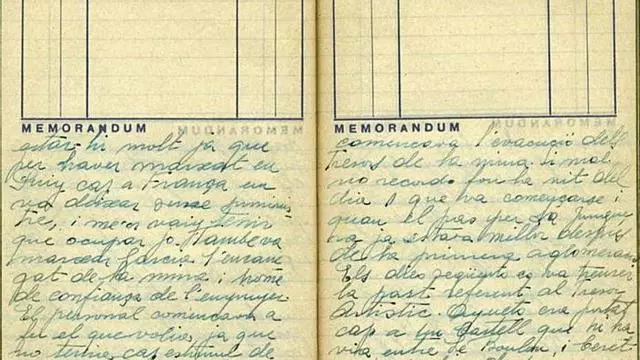 MEMORANDUM
estar-hi molt ja que
per haver marxat en
Puig cap a França en
va deixar sense suminis-
tre, i me'n vaig tenir
que ocupar jo. També va
marxar Garcia l'encarre-
gat de la mina i home
de confiança de l'enginyer
El personal comencava a
fer el que volia, ja que
no tenia cap estimul de
MEMORANDUM
comencava l'evacució dels
tresors de la mina. Si mal
no recordo fou la nit del
dia 1 que va començarse i
quan el pas per La Junque
ra ja estava millor despres
de la primera aglomeració
Els dies següents es va treure
la part referent al Tresor
Artistic. Aquets era portat
cap a un Castell que hi ha
via entre de Boulou i Ceret